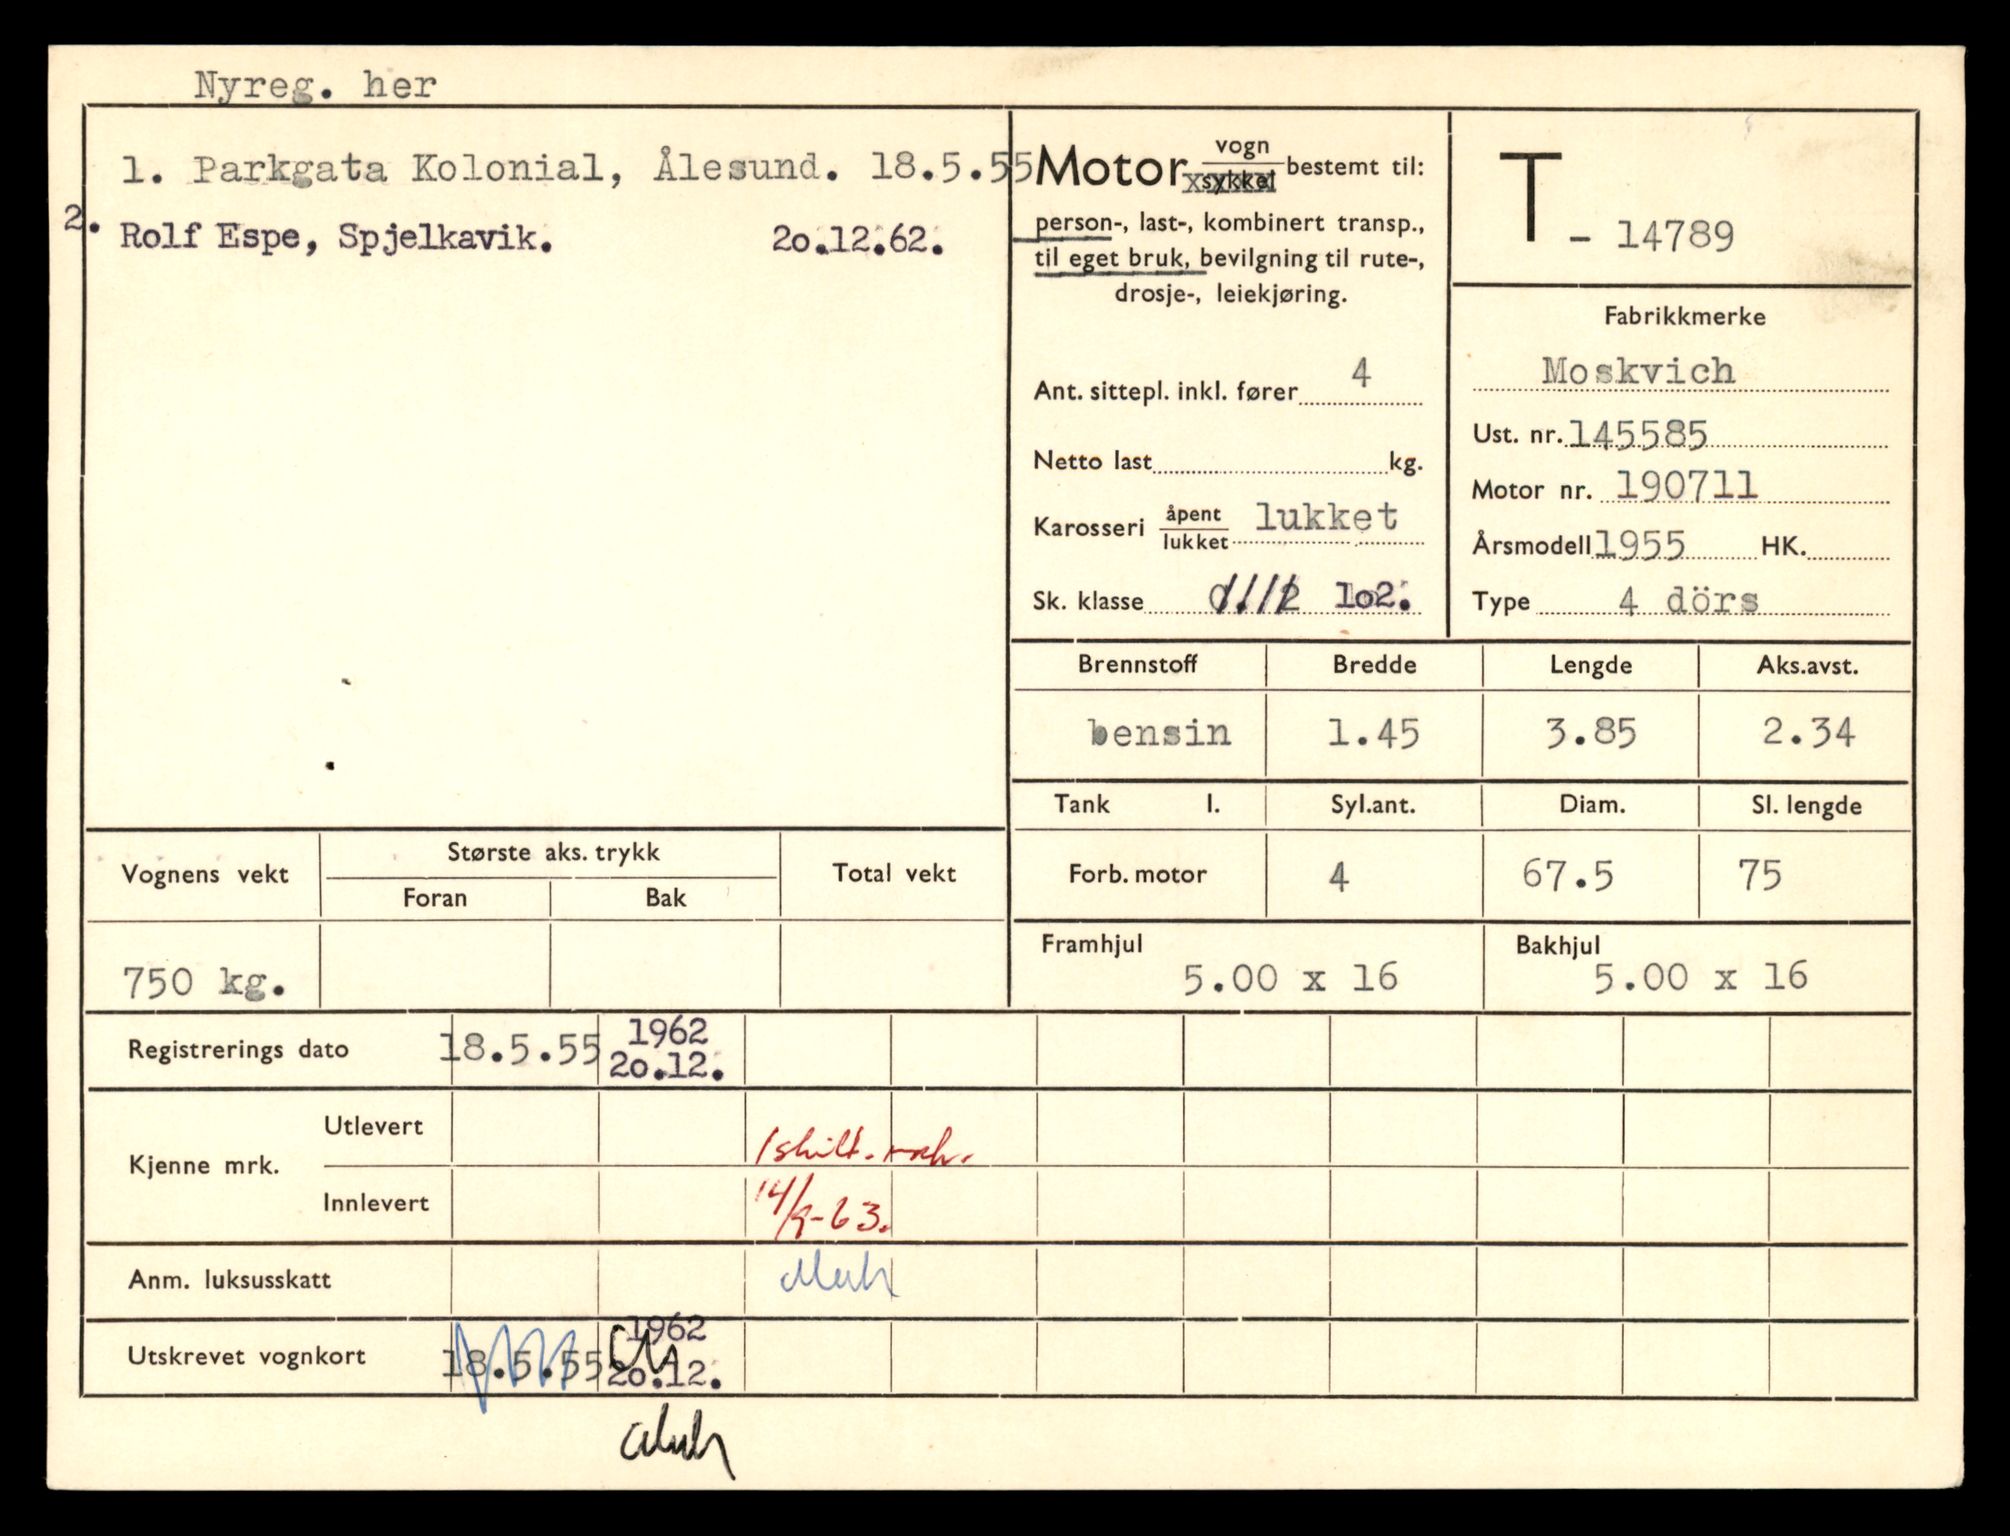 Nyreg. her
1. Parkgata Kolonial, Ålesund. 18.5.55
2. Rolf Espe, Spjelkavik. 2o.12.62.
Motor vogn
sykkel bestemt til:
person-, last-, kombinert transp.,
til eget bruk, bevilgning til rute-,
drosje-, leiekjøring.
Ant. sittepl. inkl. fører 4
Netto last kg.
Karosseri åpent
lukket lukket
Sk. klasse 1o2.
T - 14789
Fabrikkmerke
Moskvich
Ust. nr. 145585
Motor nr. 190711
Årsmodell 1955 HK.
Type 4 dörs
Brennstoff Bredde Lengde Aks.avst.
bensin 1.45 3.85 2.34
Tank l. Syl.ant. Diam. Sl. lengde
Forb. motor 4 67.5 75
Framhjul Bakhjul
5.00 x 16 5.00 x 16
Vognens vekt Største aks. trykk Total vekt
Foran Bak
750 kg.
Registrerings dato 18.5.55 1962
2o.12.
Kjenne mrk. Utlevert 1 skilt.
Innlevert 14/9-63.
Anm. luksusskatt
Utskrevet vognkort 18.5.55 1962
2o.12.